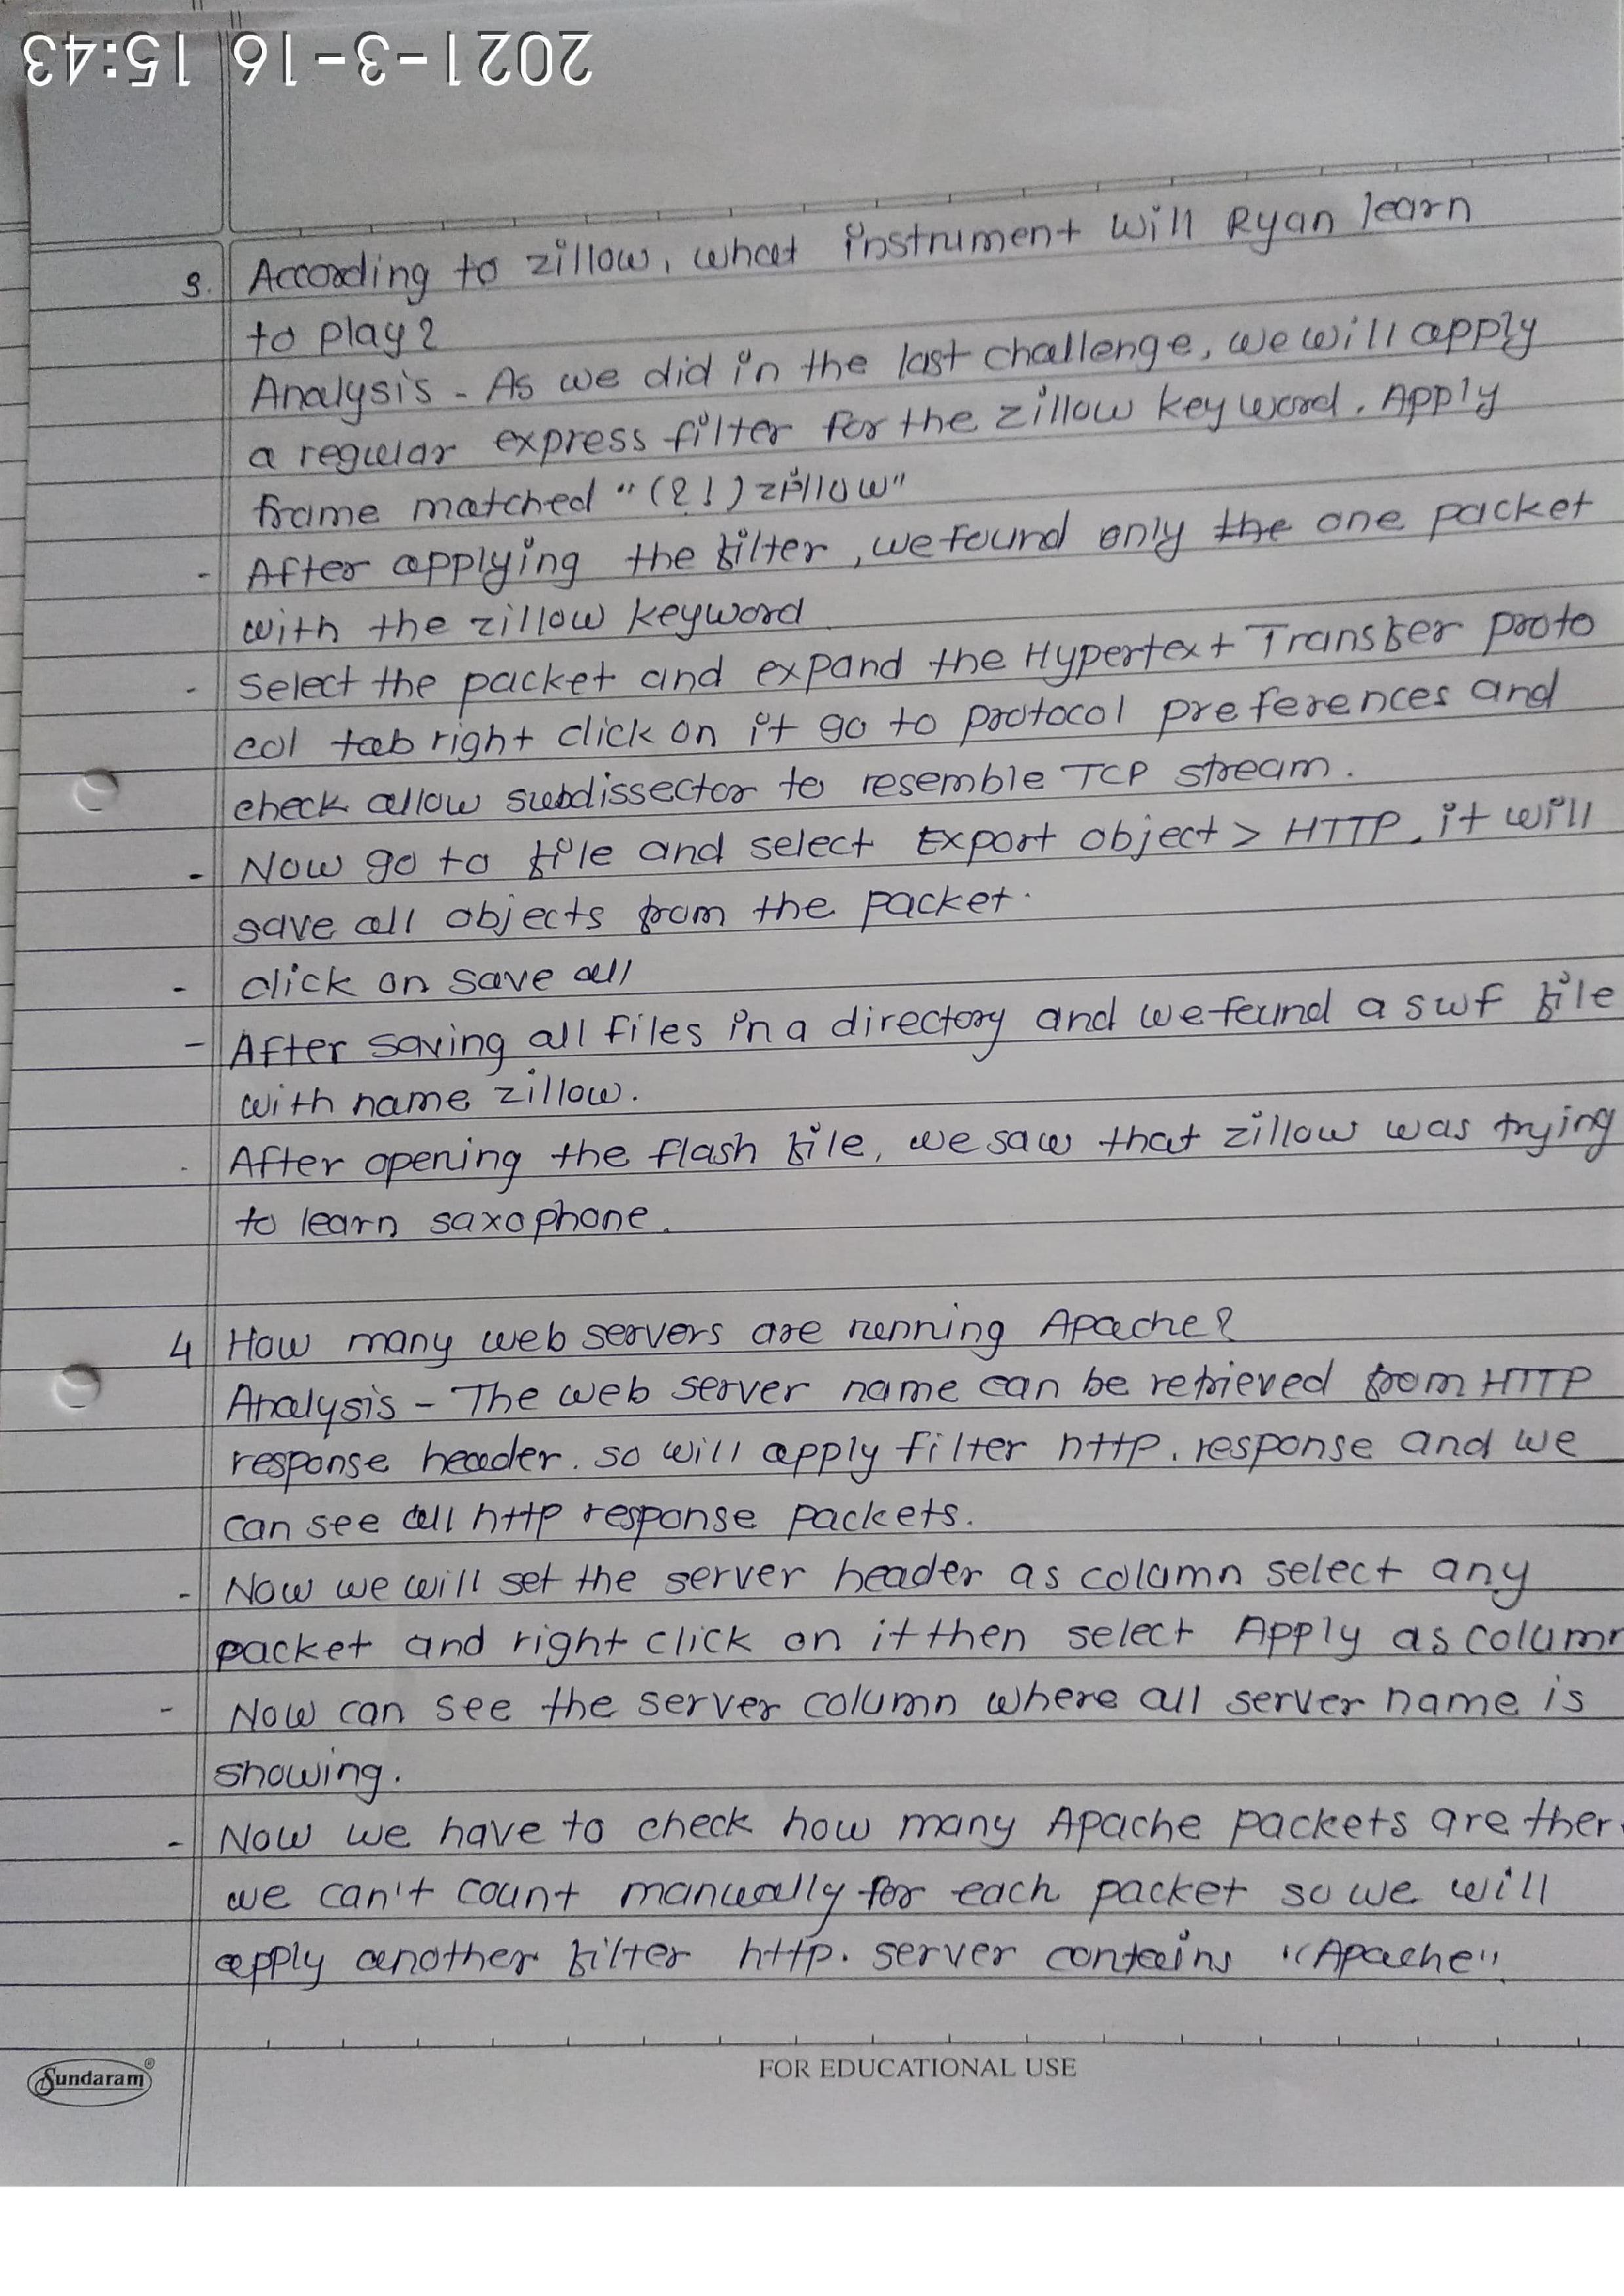 2021-3-16 15:43
3. According to zillow, what instrument will Ryan learn
to play?
Analysis - As we did in the last challenge, we will apply
a regular express filter for the zillow key word. Apply
frame matched "(?!)zillow"
- After applying the filter, we found only the one packet
with the zillow keyword
- select the packet and expand the Hypertext Transfer proto
col tab right click on it go to protocol preferences and
check allow subdissector to resemble TCP stream.
- Now go to file and select Export object > HTTP, it will
save all objects from the packet.
- click on save all
- After saving all files in a directory and we found a swf file
with name zillow.
- After opening the flash file, we saw that zillow was trying
to learn saxophone.
4 How many web servers are running Apache?
Analysis - The web server name can be retrieved from HTTP
response header. so will apply filter http.response and we
can see all http response packets.
- Now we will set the server header as column select any
packet and right click on it then select Apply as column
- Now can see the server column where all server name is
showing.
- Now we have to check how many Apache packets are ther
we can't count manually for each packet so we will
apply another filter http.server contains "Apache".
Sundaram®
FOR EDUCATIONAL USE